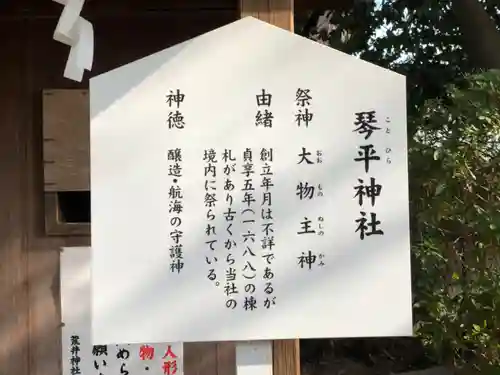 琴平神社
こと ひら
祭神 大物主神
おお もの ぬしの かみ
由緒 創立年月は不詳であるが
貞享五年（一六八八）の棟
札があり古くから当社の
境内に祭られている。
神徳 醸造・航海の守護神
人形
物・
めら
願い
荒井神社